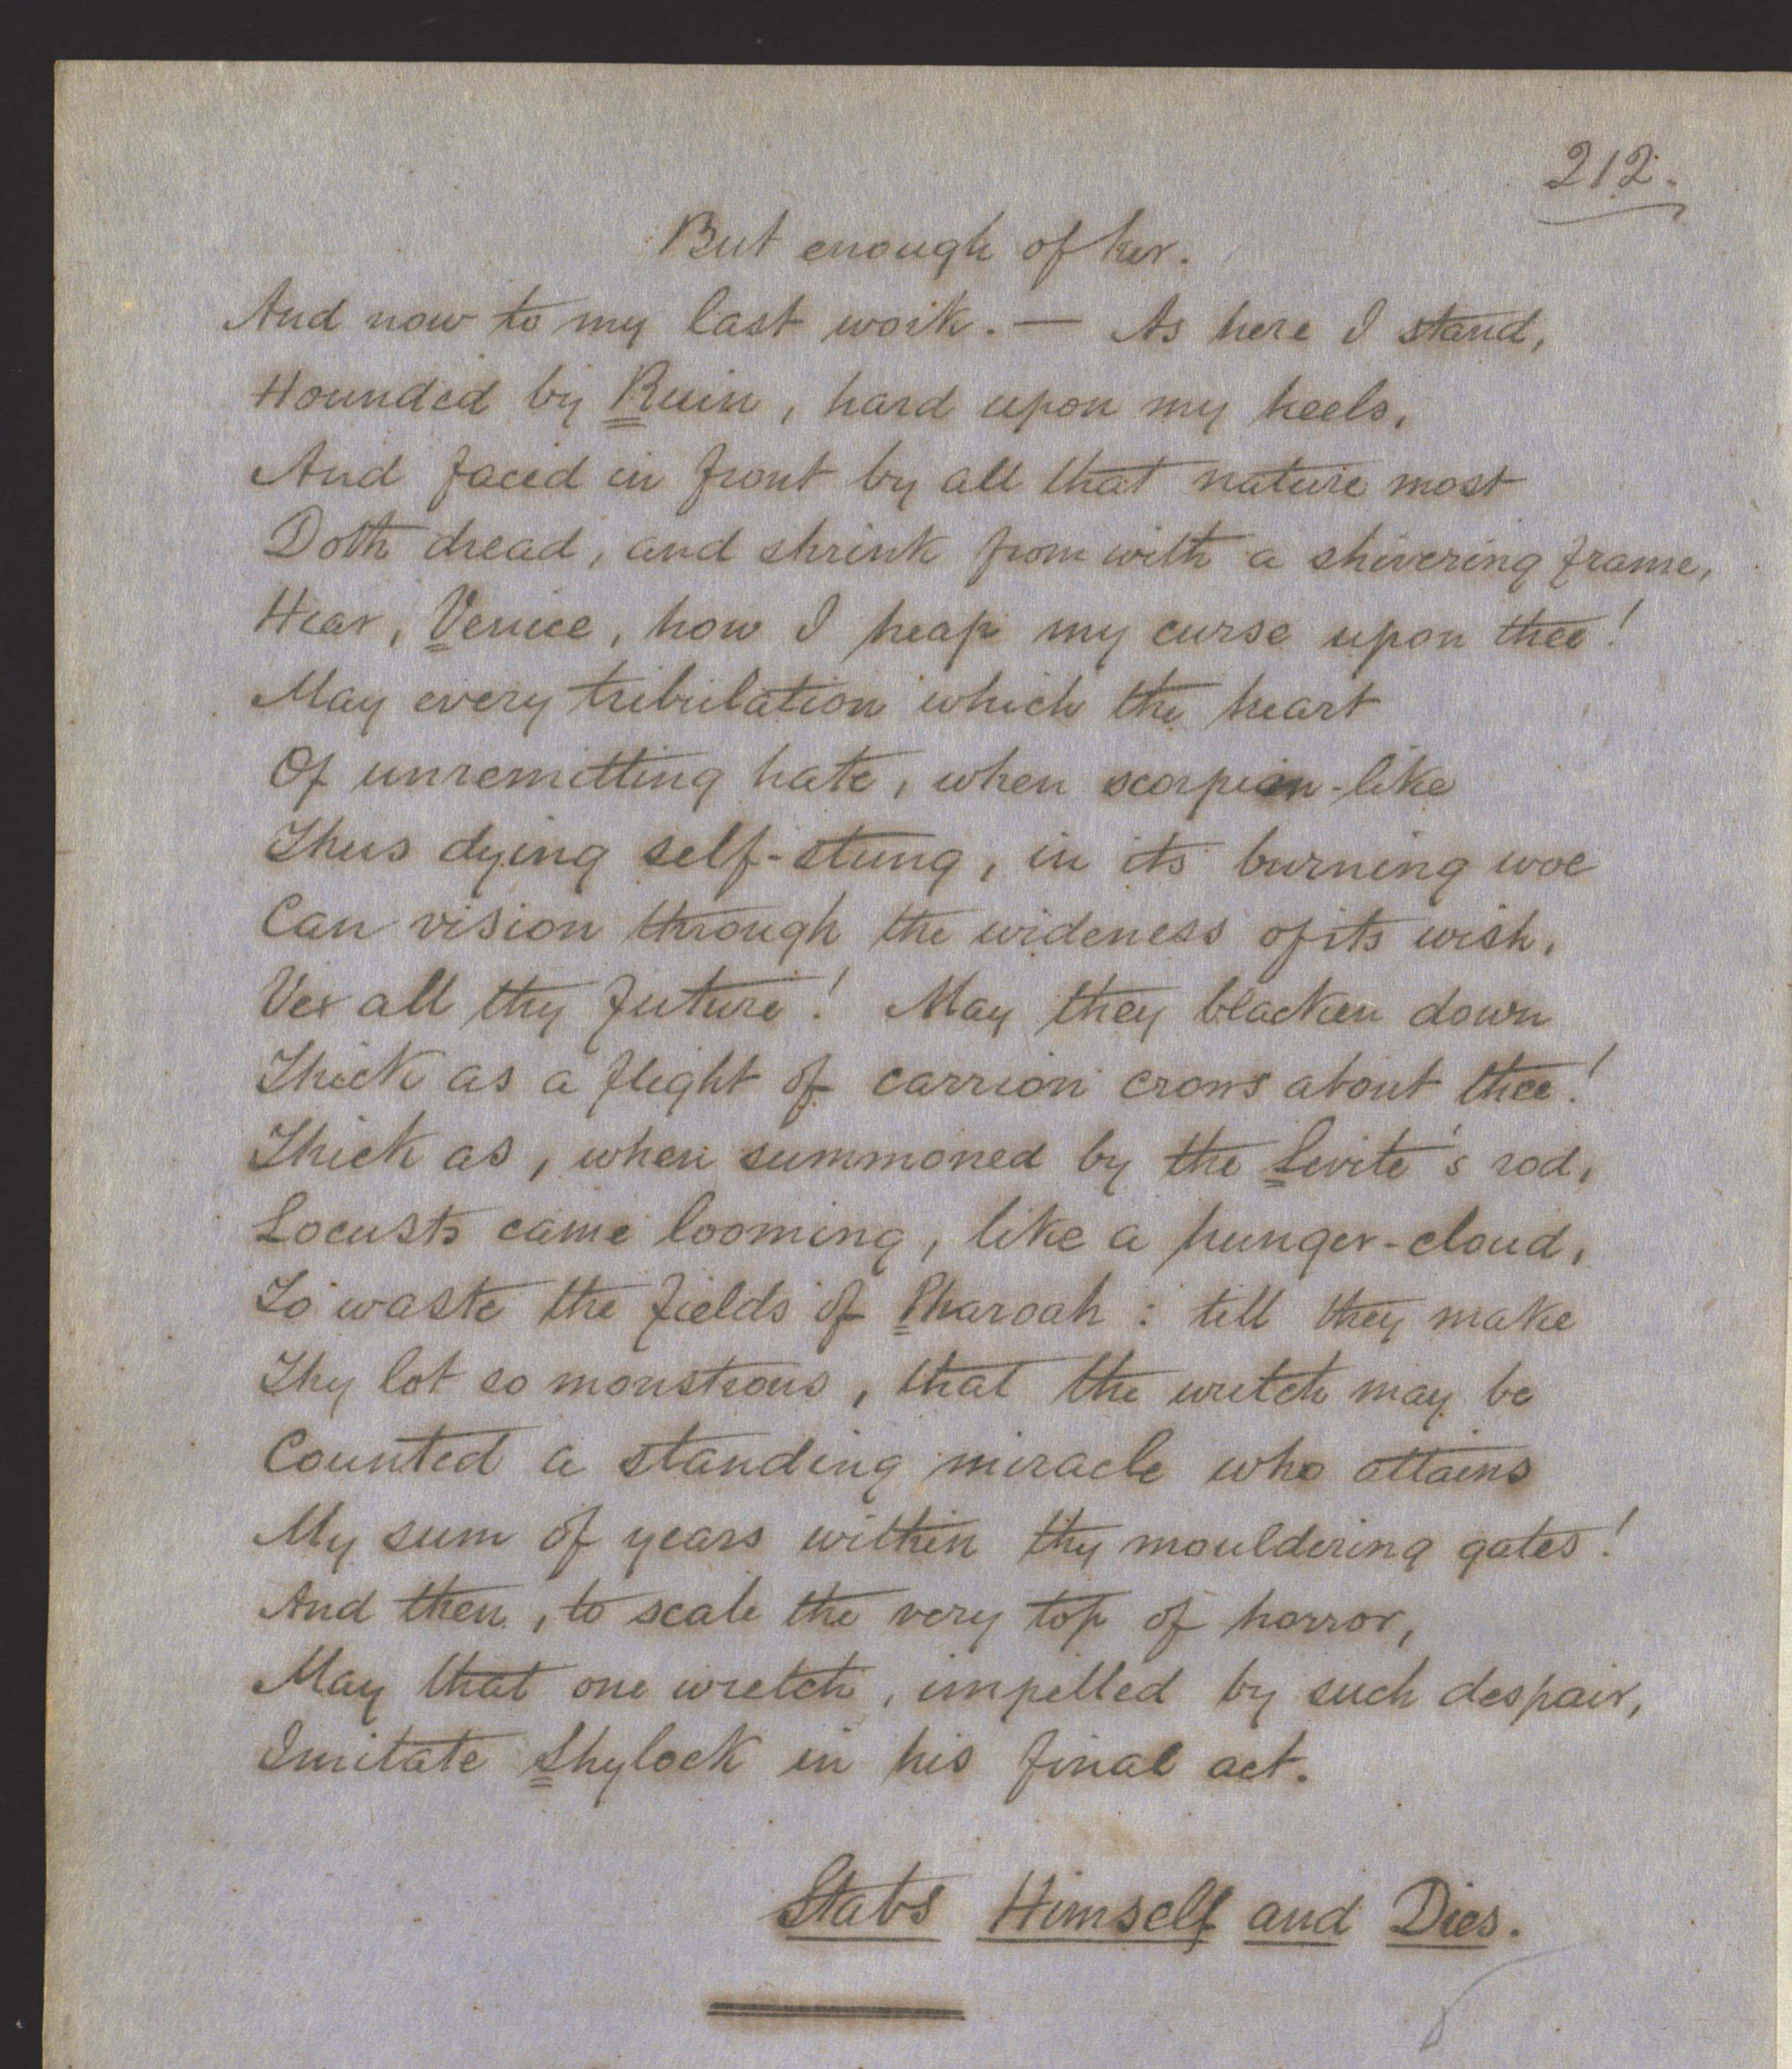 212.
But enough of her.
And now to my last work. — As here I stand,
Hounded by Ruin, hard upon my heels,
And faced in front by all that nature most
Doth dread, and shrink from with a shivering frame,
Hear, Venice, how I heap my curse upon thee!
May every tribulation which the heart
Of unremitting hate, when scorpion-like
Thus dying self-stung, in its burning woe
Can vision through the wideness of its wish,
Vex all thy future! May they blacken down
Thick as a flight of carrion crows about thee!
Thick as, when summoned by the Levite's rod,
Locusts came looming, like a hunger-cloud,
To waste the fields of Pharoah: till they make
Thy lot so monstrous, that the wretch may be
Counted a standing miracle who attains
My sum of years within thy mouldering gates!
And then, to scale the very top of horror,
May that one wretch, impelled by such despair,
Imitate Shylock in his final act.
Stabs Himself and Dies.